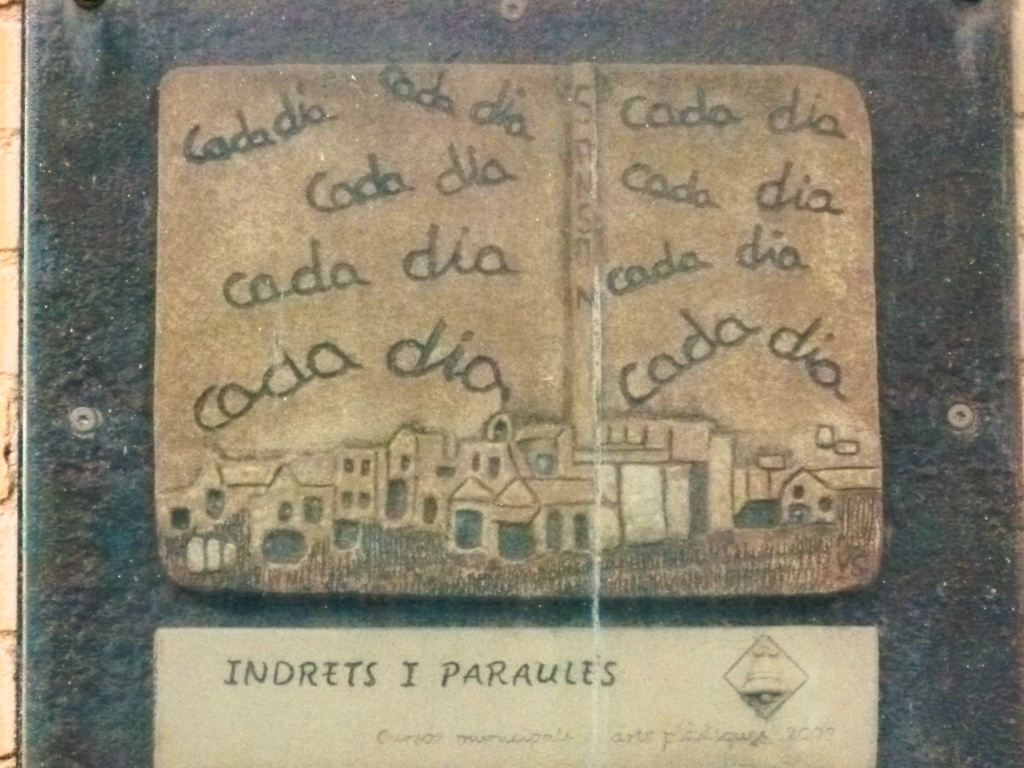 cada dia
cada dia
cada dia
cada dia
cada dia
cada dia
cada dia
cada dia
cada dia
INDRETS I PARAULES
Cursos municipals arts plàstiques